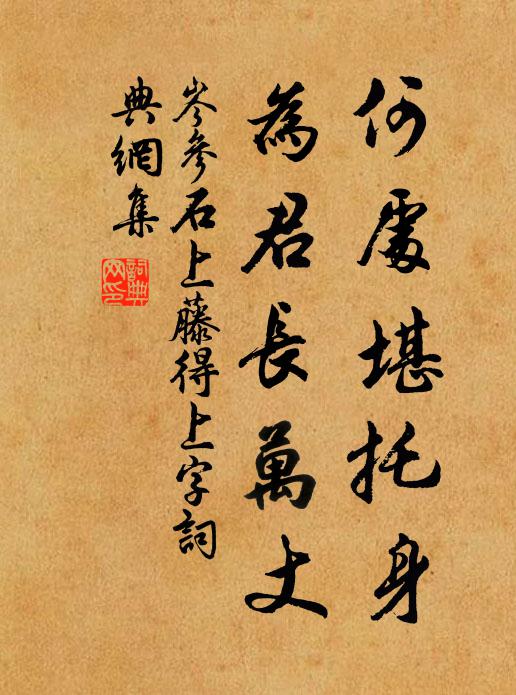 何處堪托身
為君長萬丈
岑參石上藤得上字詞
典網集
詞典
網印